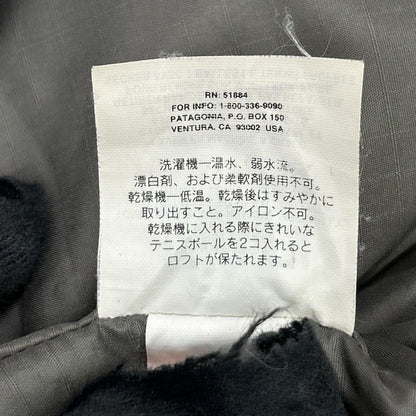 RN: 51884
FOR INFO: 1-800-336-9090
PATAGONIA, P.O. BOX 150
VENTURA, CA 93002 USA
洗濯機—温水、弱水流。
漂白剤、および柔軟剤使用不可。
乾燥機—低温。乾燥後はすみやかに
取り出すこと。アイロン不可。
乾燥機に入れる際にきれいな
テニスボールを2コ入れると
ロフトが保たれます。